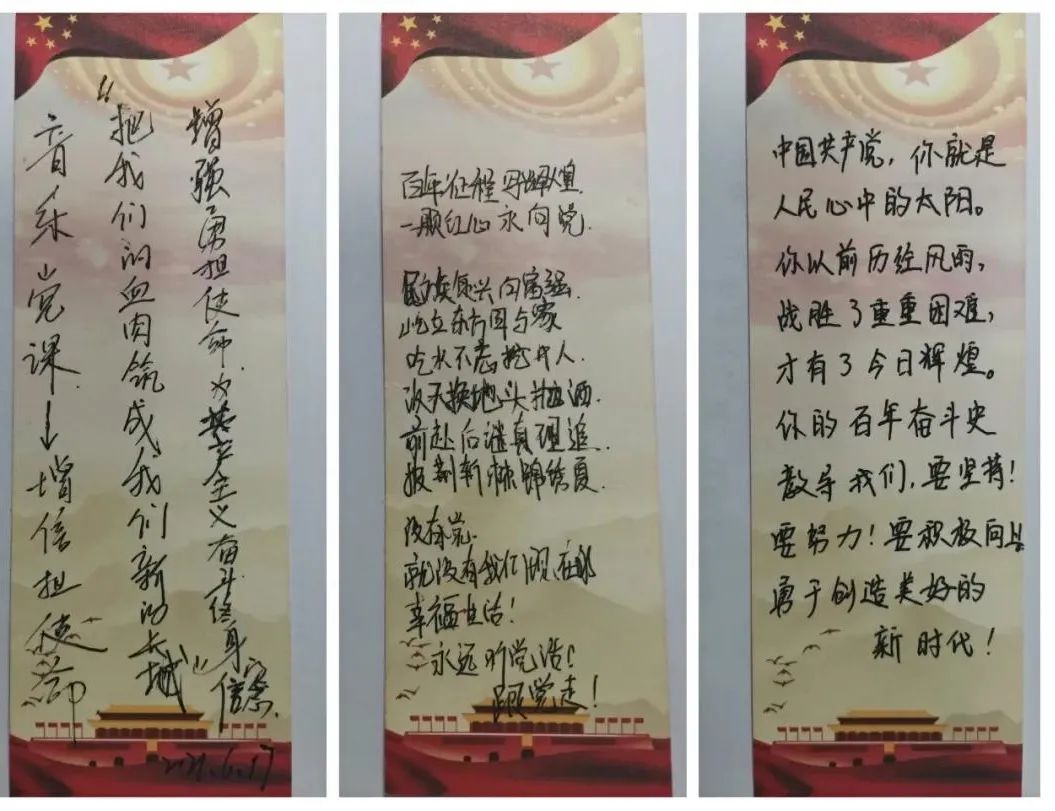 音乐党课↓增信担使命
“把我们的血肉筑成我们新的长城”
增强勇担使命为共产主义奋斗终身信念.
2021.6.17
百年征程写辉煌.
一颗红心永向党.
民族复兴向富强.
屹立东方国与家
吃水不忘挖井人.
改天换地头抛洒.
前赴后继真理追.
披荆斩棘锦绣夏.
没有党.
就没有我们现在的
幸福生活!
永远听党话!
跟党走!
中国共产党，你就是
人民心中的太阳。
你以前历经风雨，
战胜了重重困难，
才有了今日辉煌。
你的百年奋斗史
教导我们，要坚持!
要努力!要积极向上
勇于创造美好的
新时代!